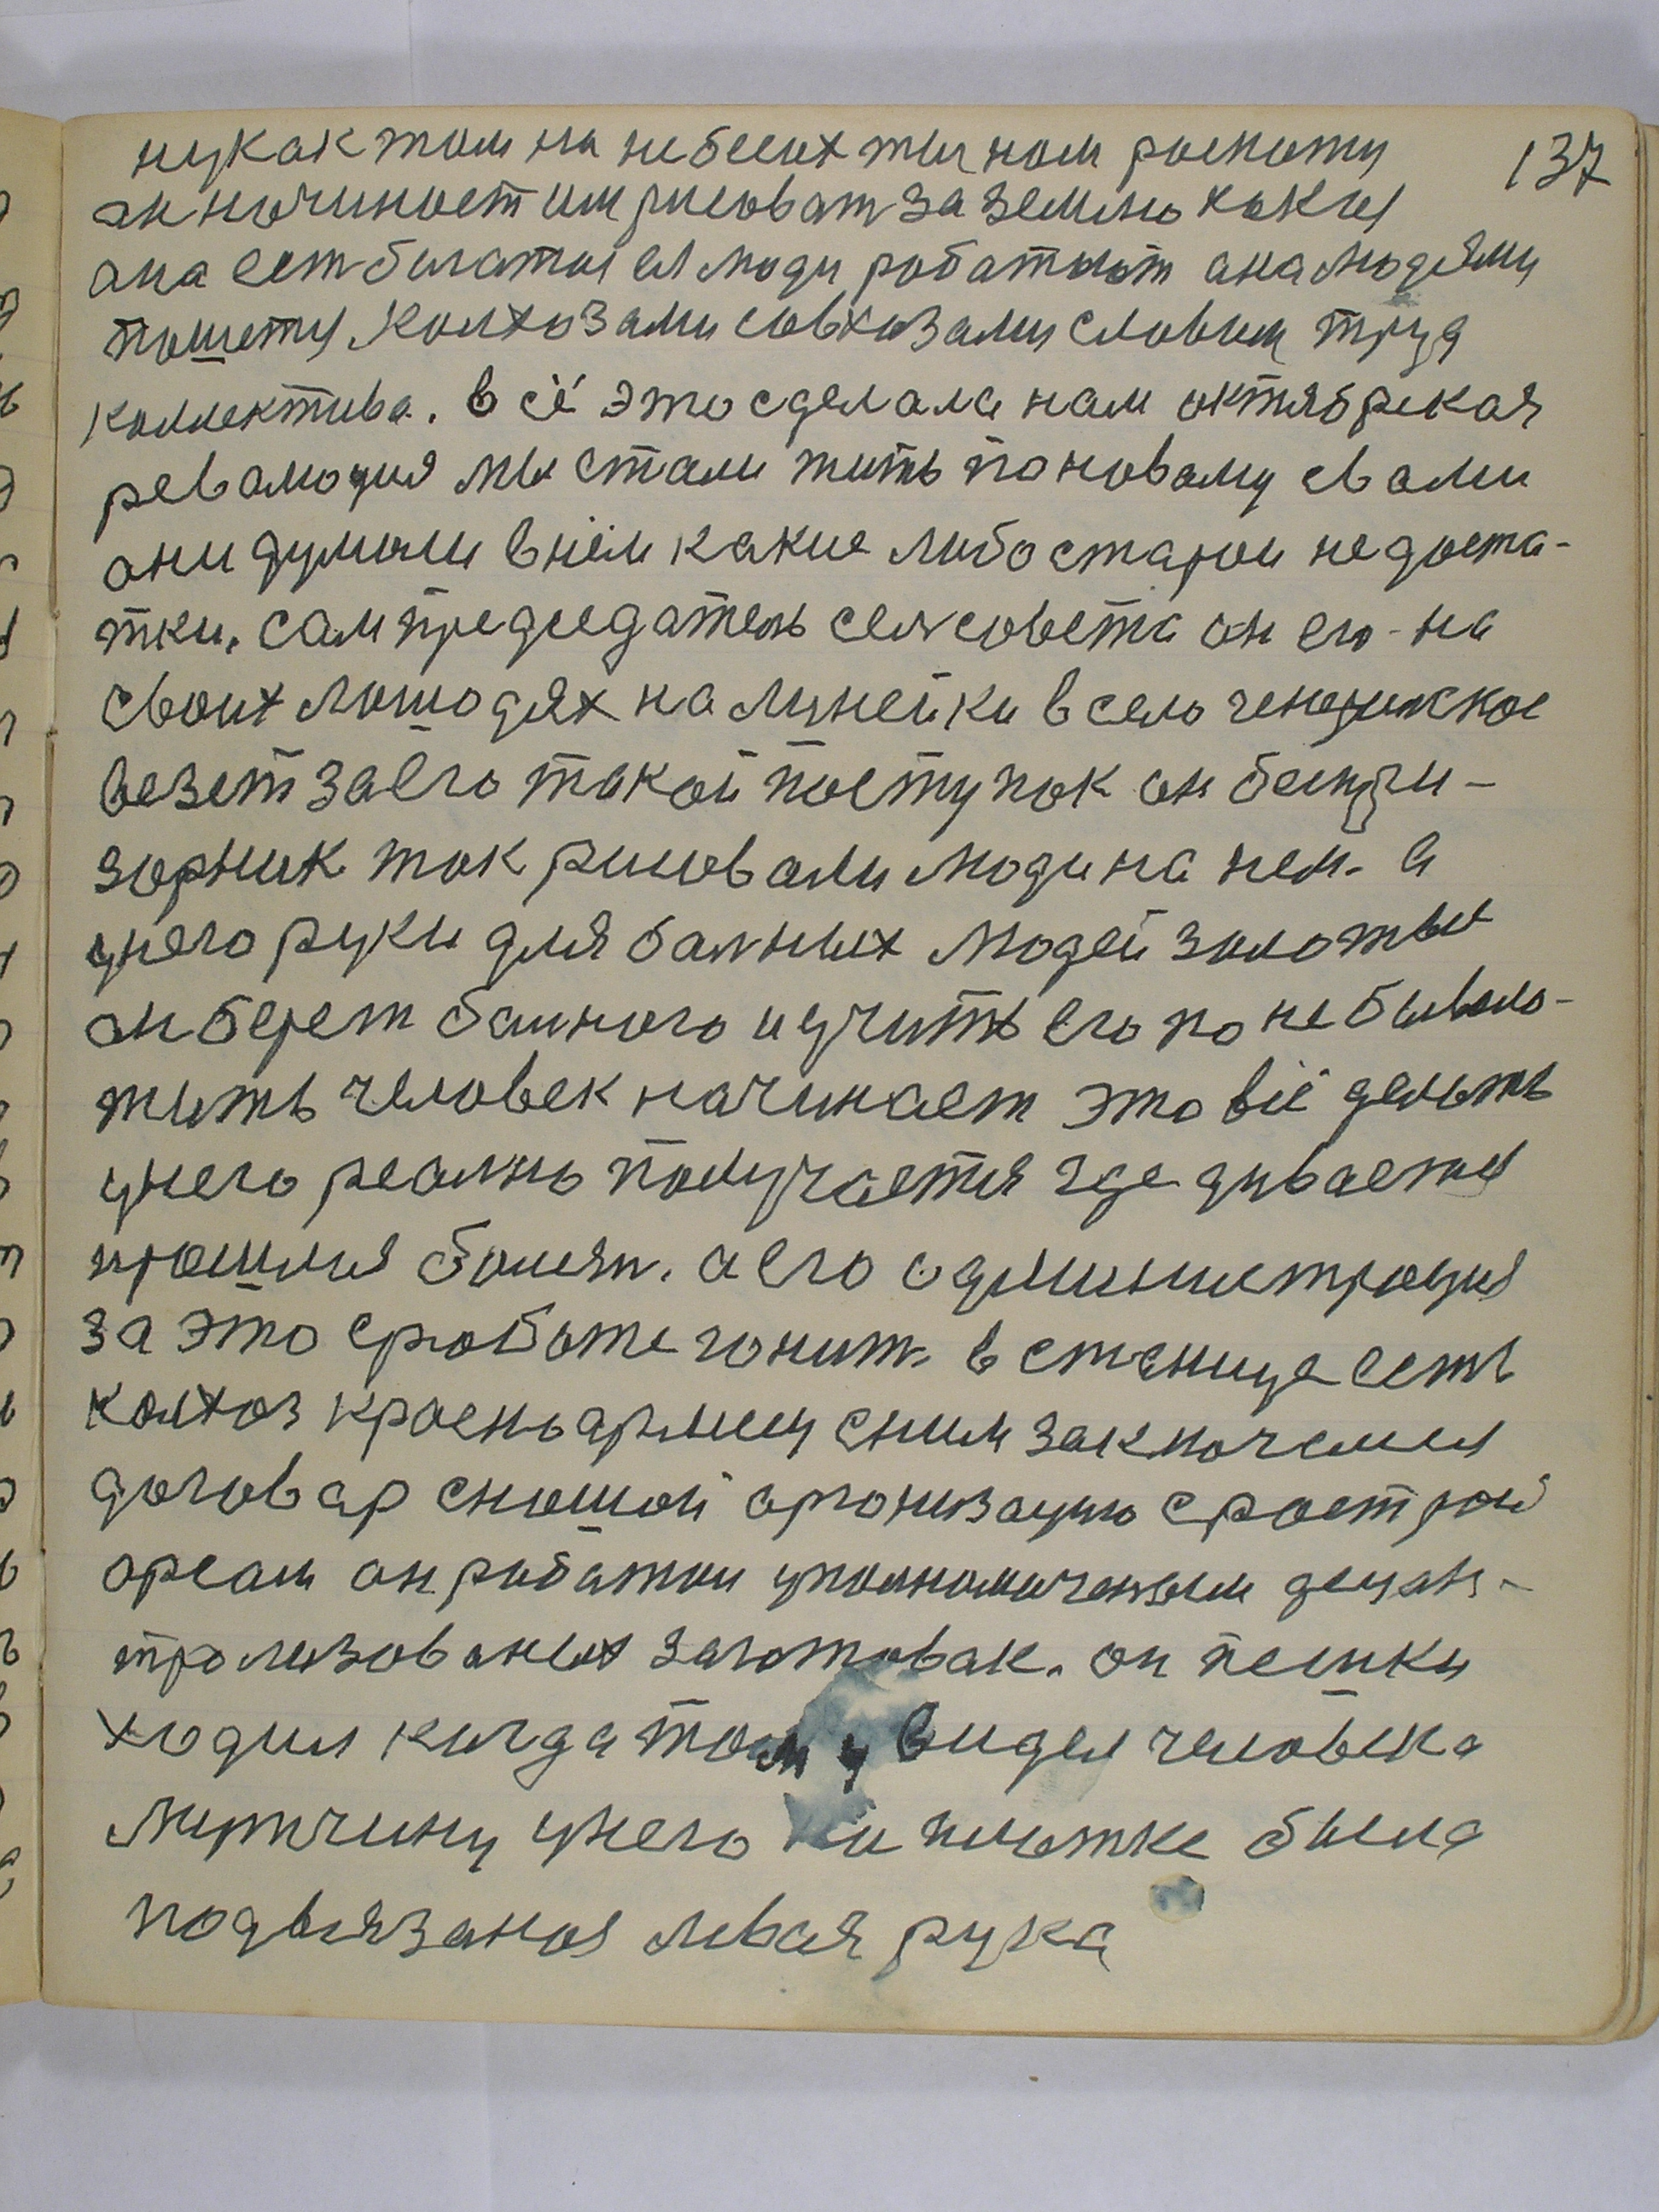 137
ну как там на небесах ты нам роскажи
он начинает им рисоват за землю какия
она ест багатая ея люди работают ана людями
пашется колхозами совхозами словом труд
коллектива. всё это сделала нам октябрская
революция мы стали жить по новаму свами
они думали внём какие либо старои недоста-
тки. сам председатель селсовета он его на
своих лошодях на линейки в село ченежскае
везет за его такой поступок он беспри-
зорник так рисовали люди на нем. а
унего руки для балных людей золотые
он берет балного и учить его по небывало-
жить человек начинает это всё делоть
унего реално получается где дивается
прошлая болезн. а его администрация
за это сработе гонит. в станице есть
колхоз красноармеец сним заключался
договар сношой организацию срострои
ореам он работои уполномоченным децэн-
трализованых заготовак. он пешки
ходил когда там увидел человека
мужчину унего на платке была
подвязаная левая рука